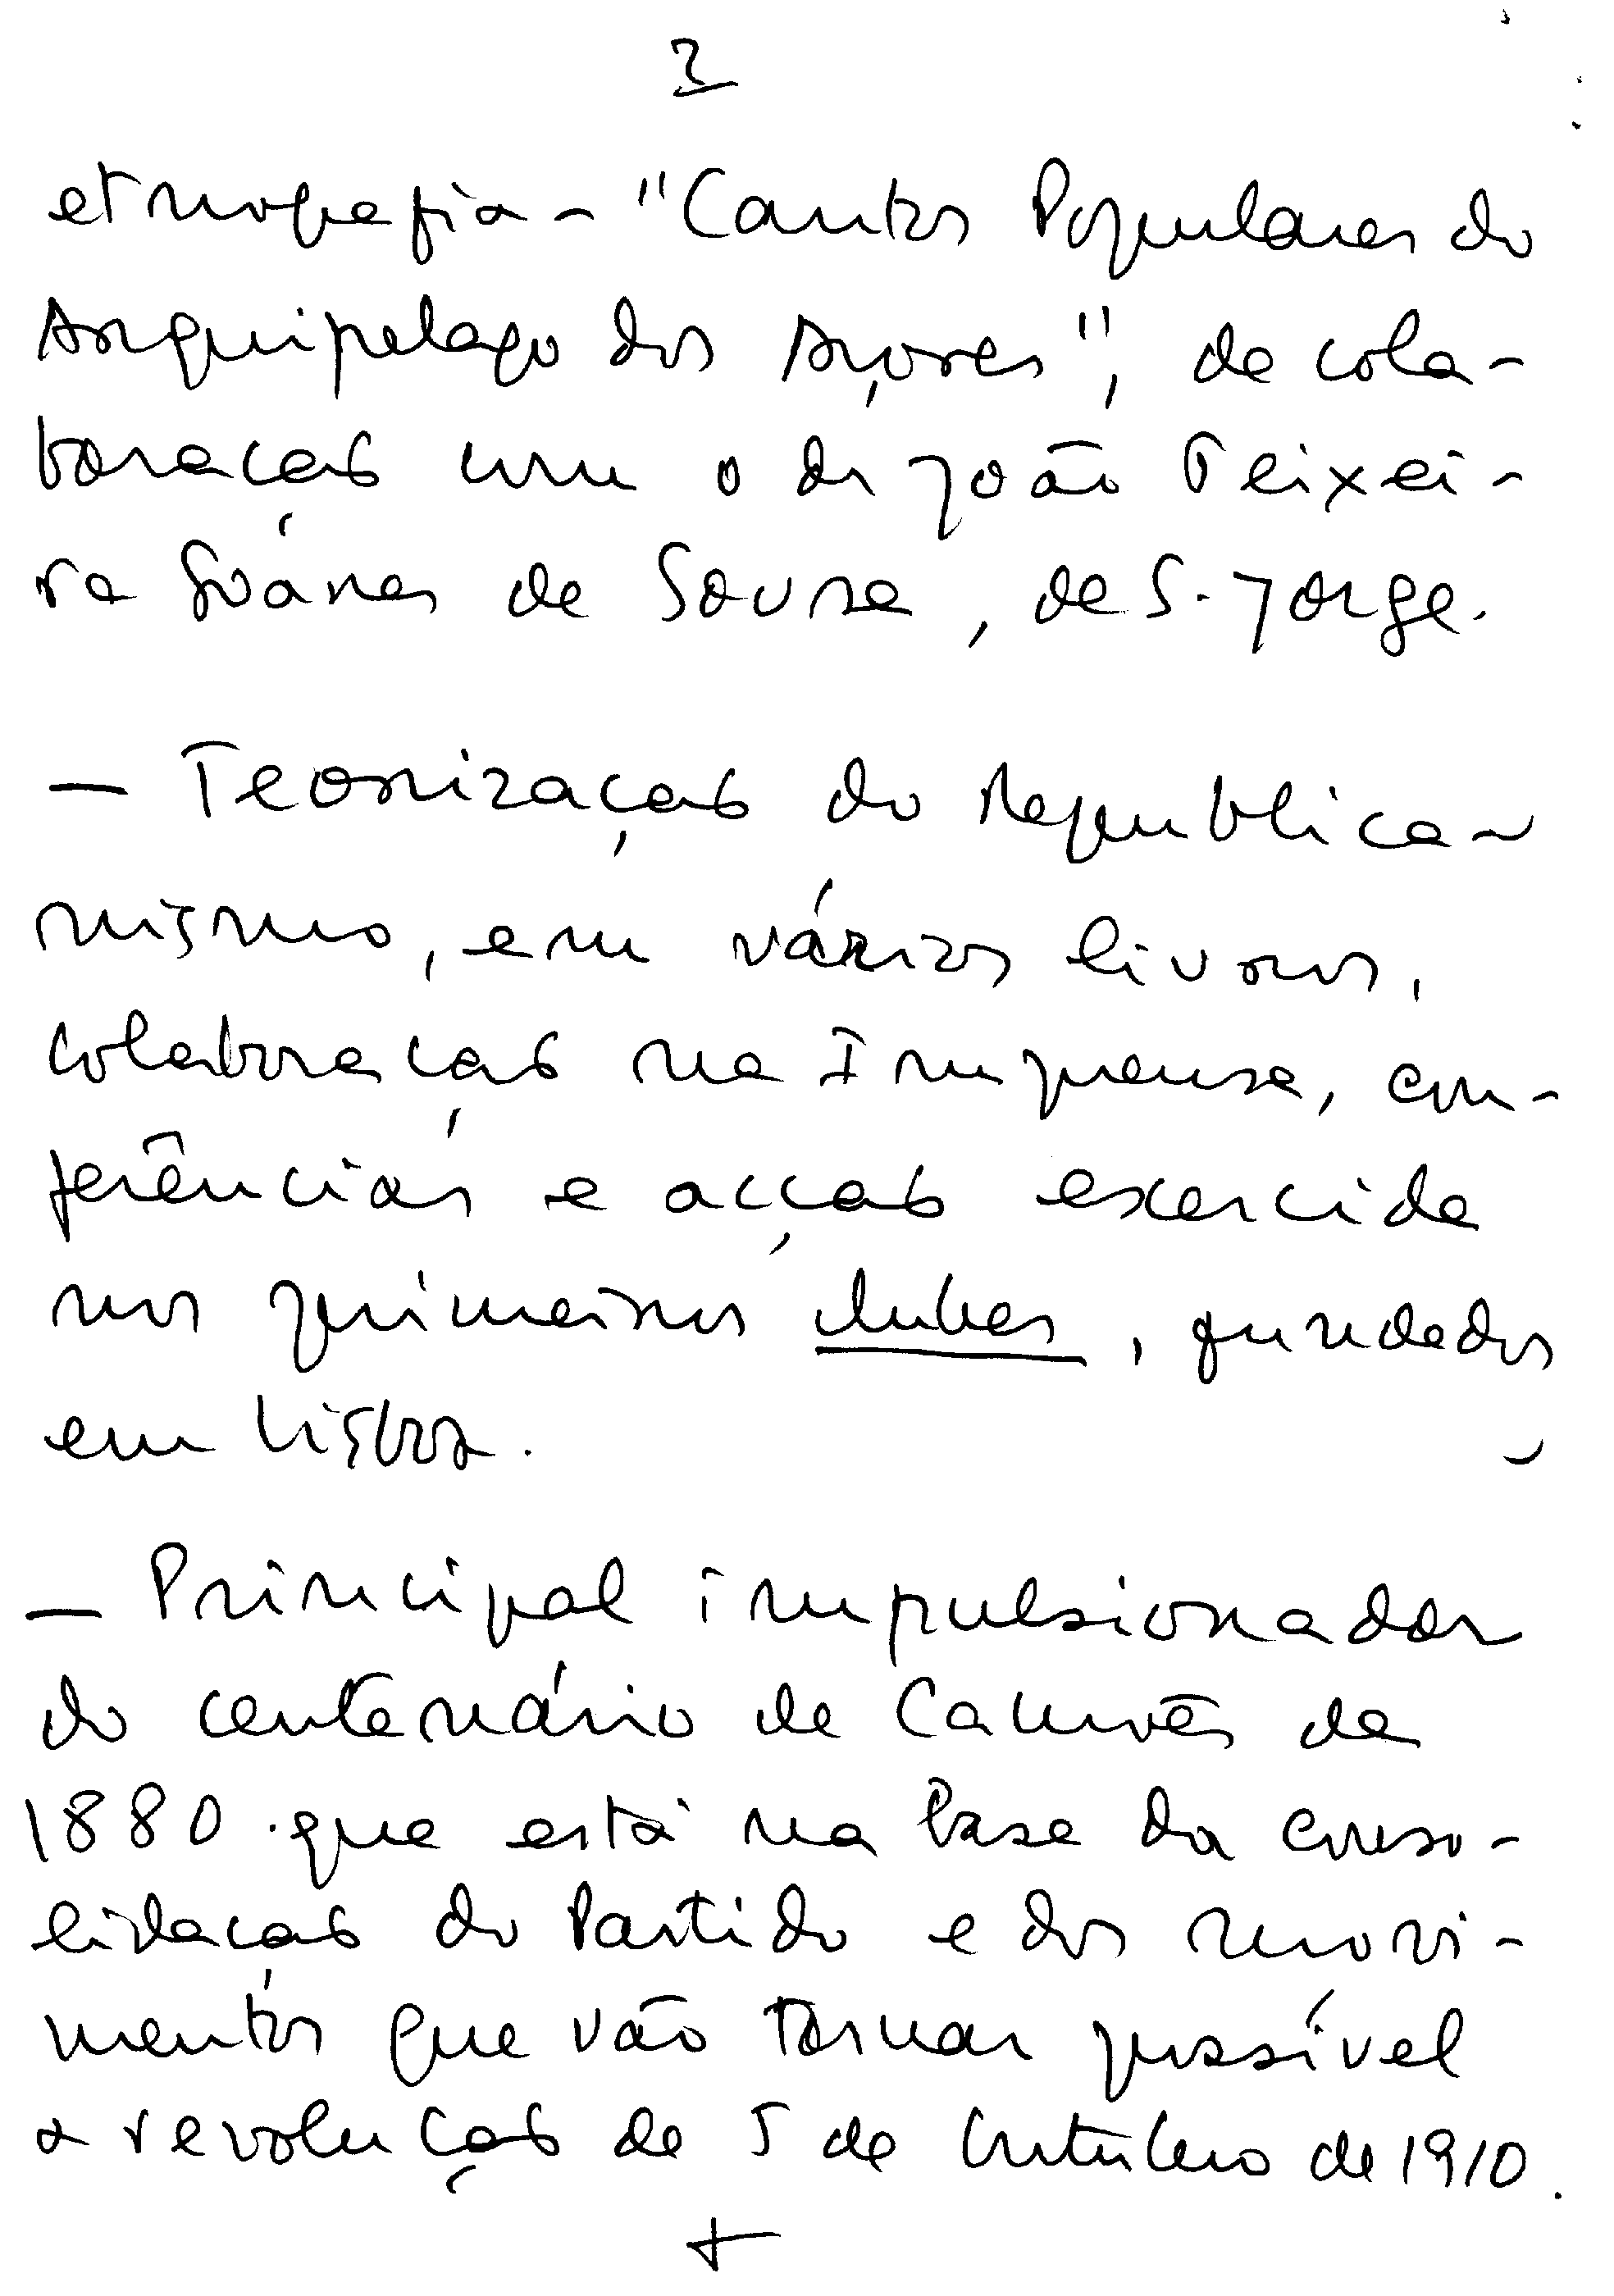 2
etnografia - "Cantos Populares do
Arquipelago dos Açores", de cola-
boração com o dr João Teixei-
ra Soares de Sousa, de S. Jorge.
— Teorização do Republica-
nismo, em vários livros,
colaboração na Imprensa, con-
ferências e acção exercida
nos primeiros clubes, fundados
em Lisboa.
— Principal impulsionador
do centenário de Camões de
1880 que está na base da conso-
lidação do Partido e dos movi-
mentos que vão tornar possível
a revolução de 5 de Outubro de 1910.
+